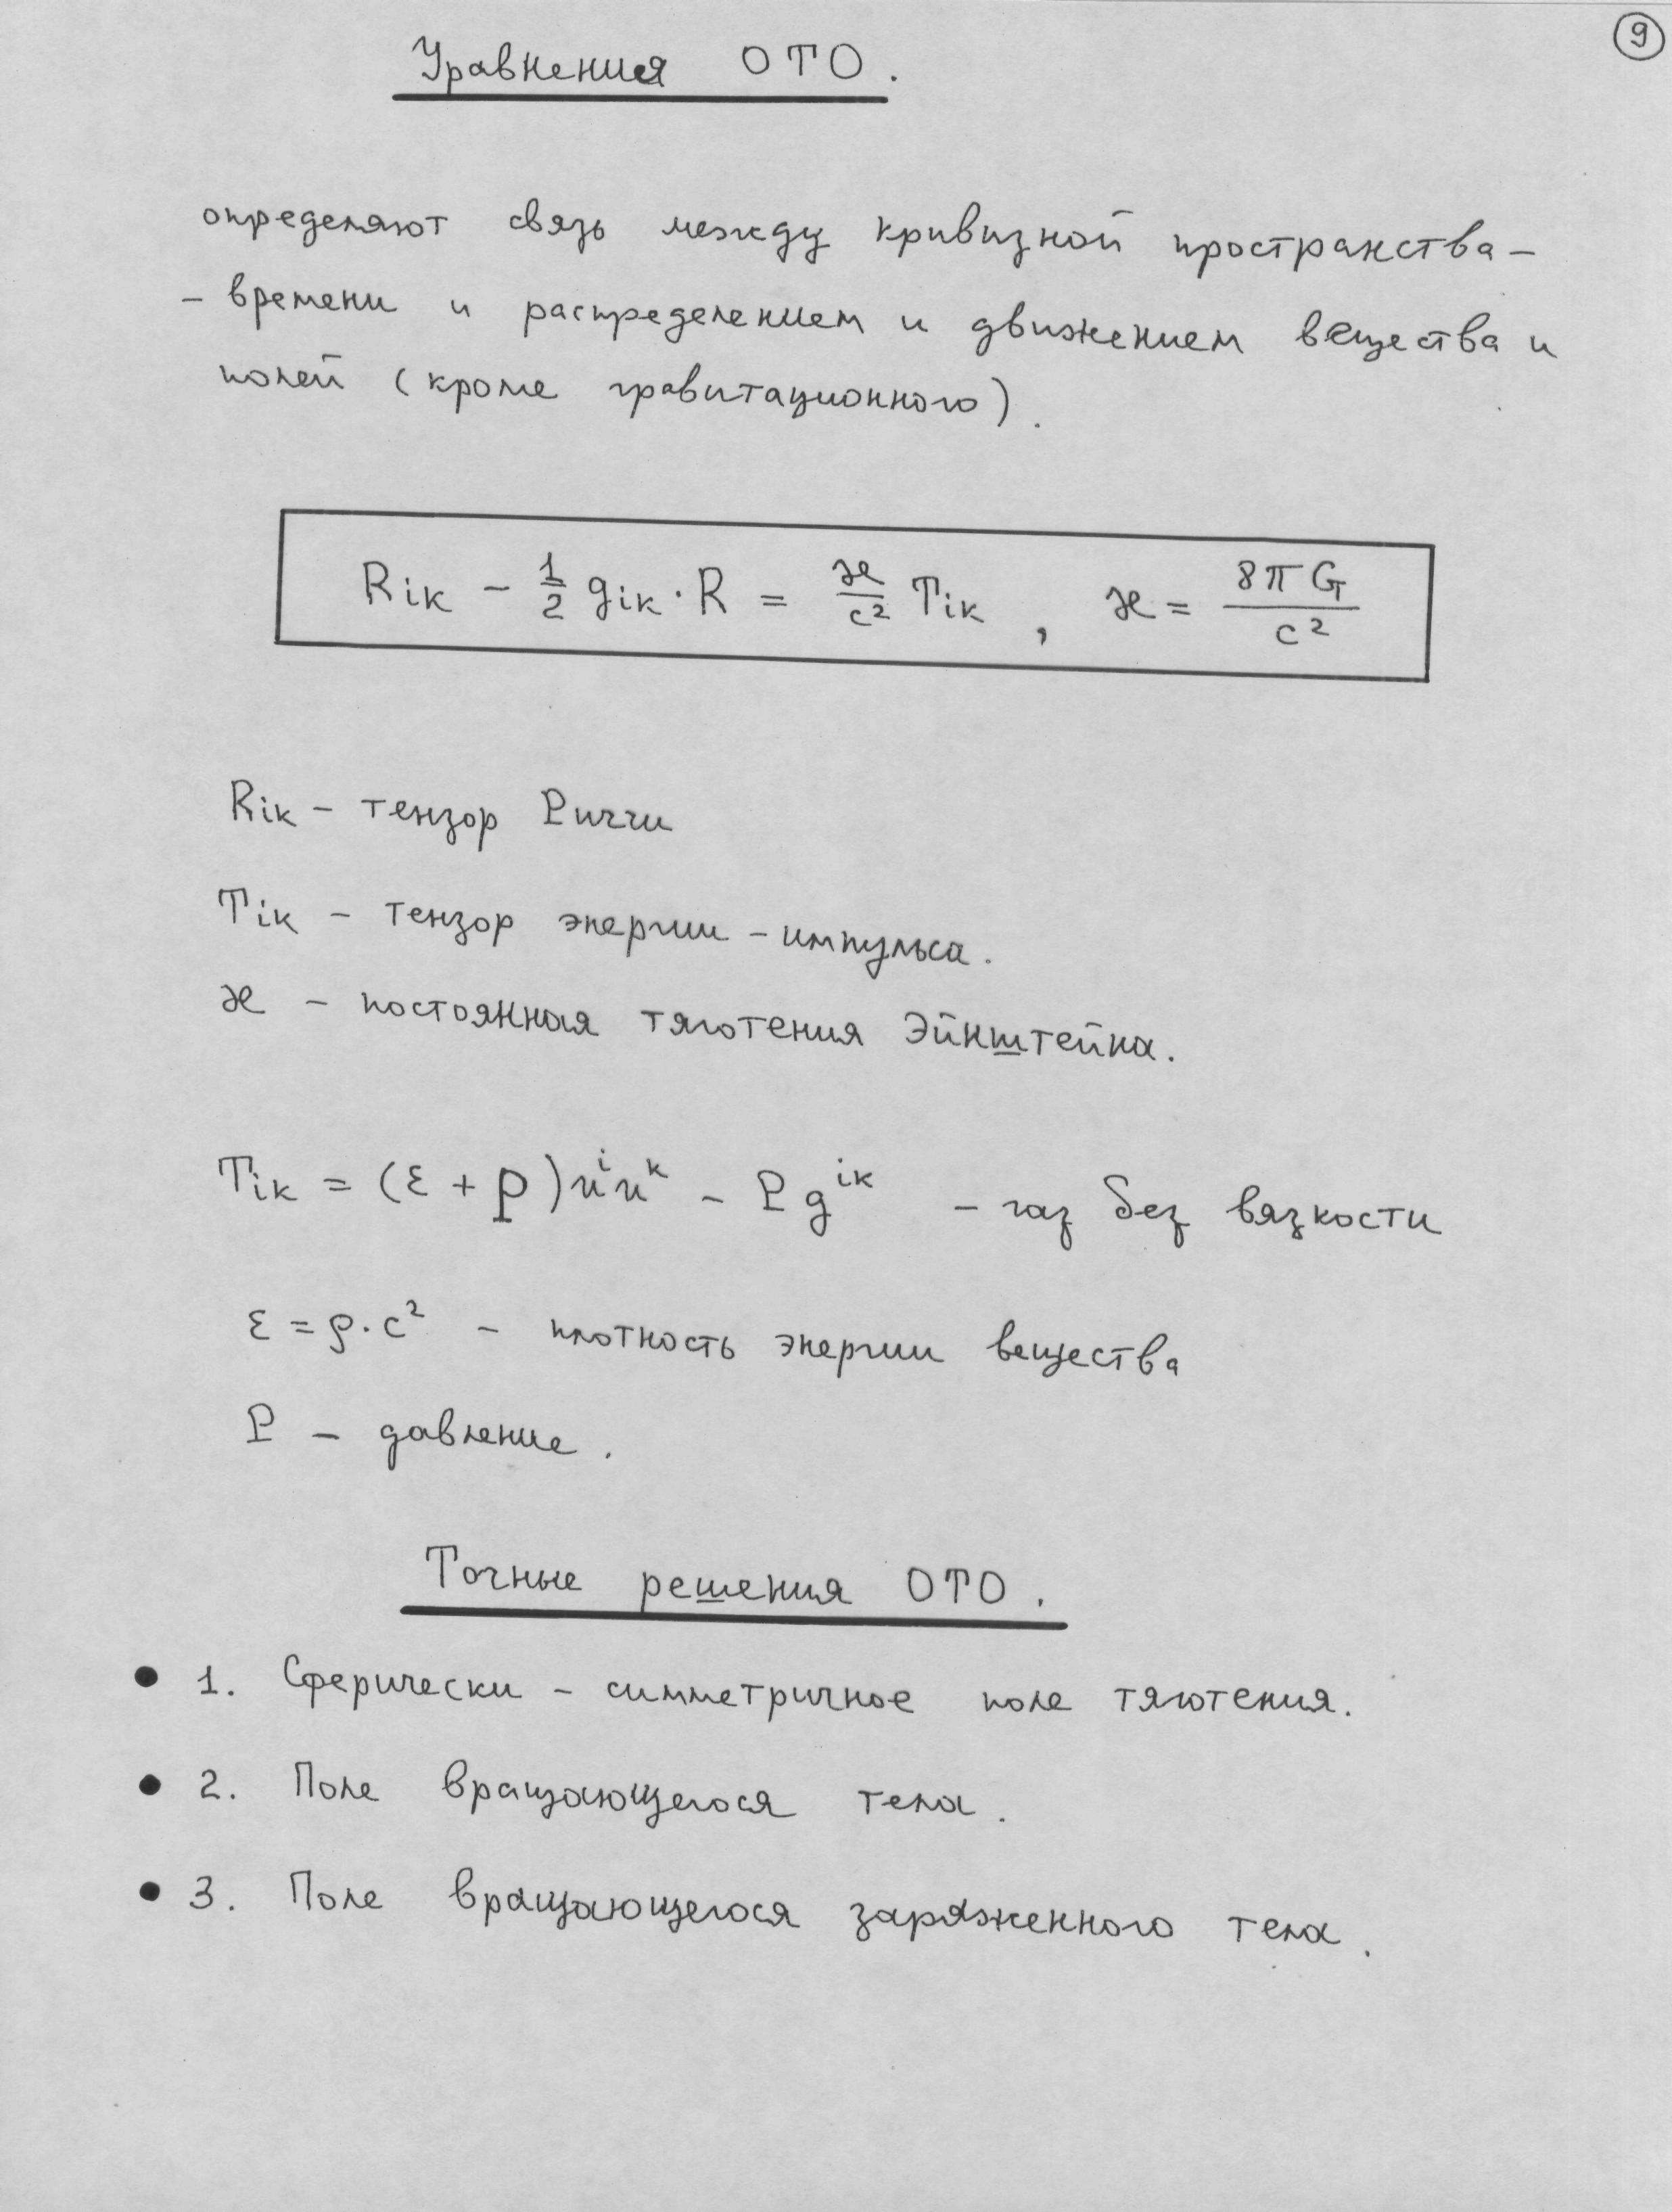 9
Уравнения ОТО.
определяют связь между кривизной пространства-
- времени и распределением и движением вещества и
полей (кроме гравитационного).
Rik - 1/2 gik · R = ϰ/c² Tik , ϰ = 8πG/c²
Rik - тензор Риччи
Tik - тензор энергии - импульса.
ϰ - постоянная тяготения Эйнштейна.
Tik = (ε + p)uⁱuᵏ - P gⁱᵏ - газ без вязкости
ε = ρ·c² - плотность энергии вещества
P - давление.
Точные решения ОТО.
• 1. Сферически - симметричное поле тяготения.
• 2. Поле вращающегося тела.
• 3. Поле вращающегося заряженного тела.